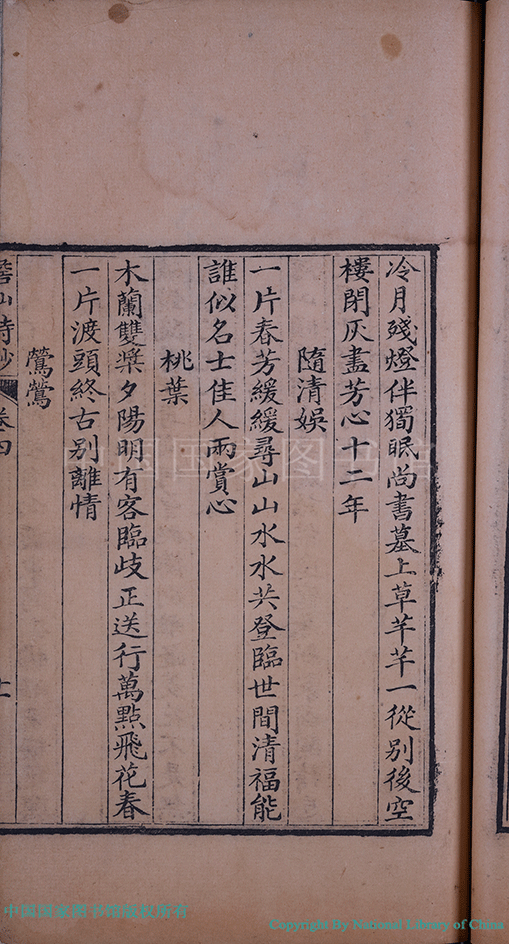 冷月殘燈伴獨眠尚書墓上草芊芊一從別後空
樓閉灰盡芳心十二年
隨清娛
一片春芳緩緩尋山山水水共登臨世間清福能
誰似名士佳人兩賞心
桃葉
木蘭雙槳夕陽明有客臨歧正送行萬點飛花春
一片渡頭終古別離情
鶯鶯
詩鈔 卷四
中国国家图书馆
中国国家图书馆版权所有
Copyright By National Library of China